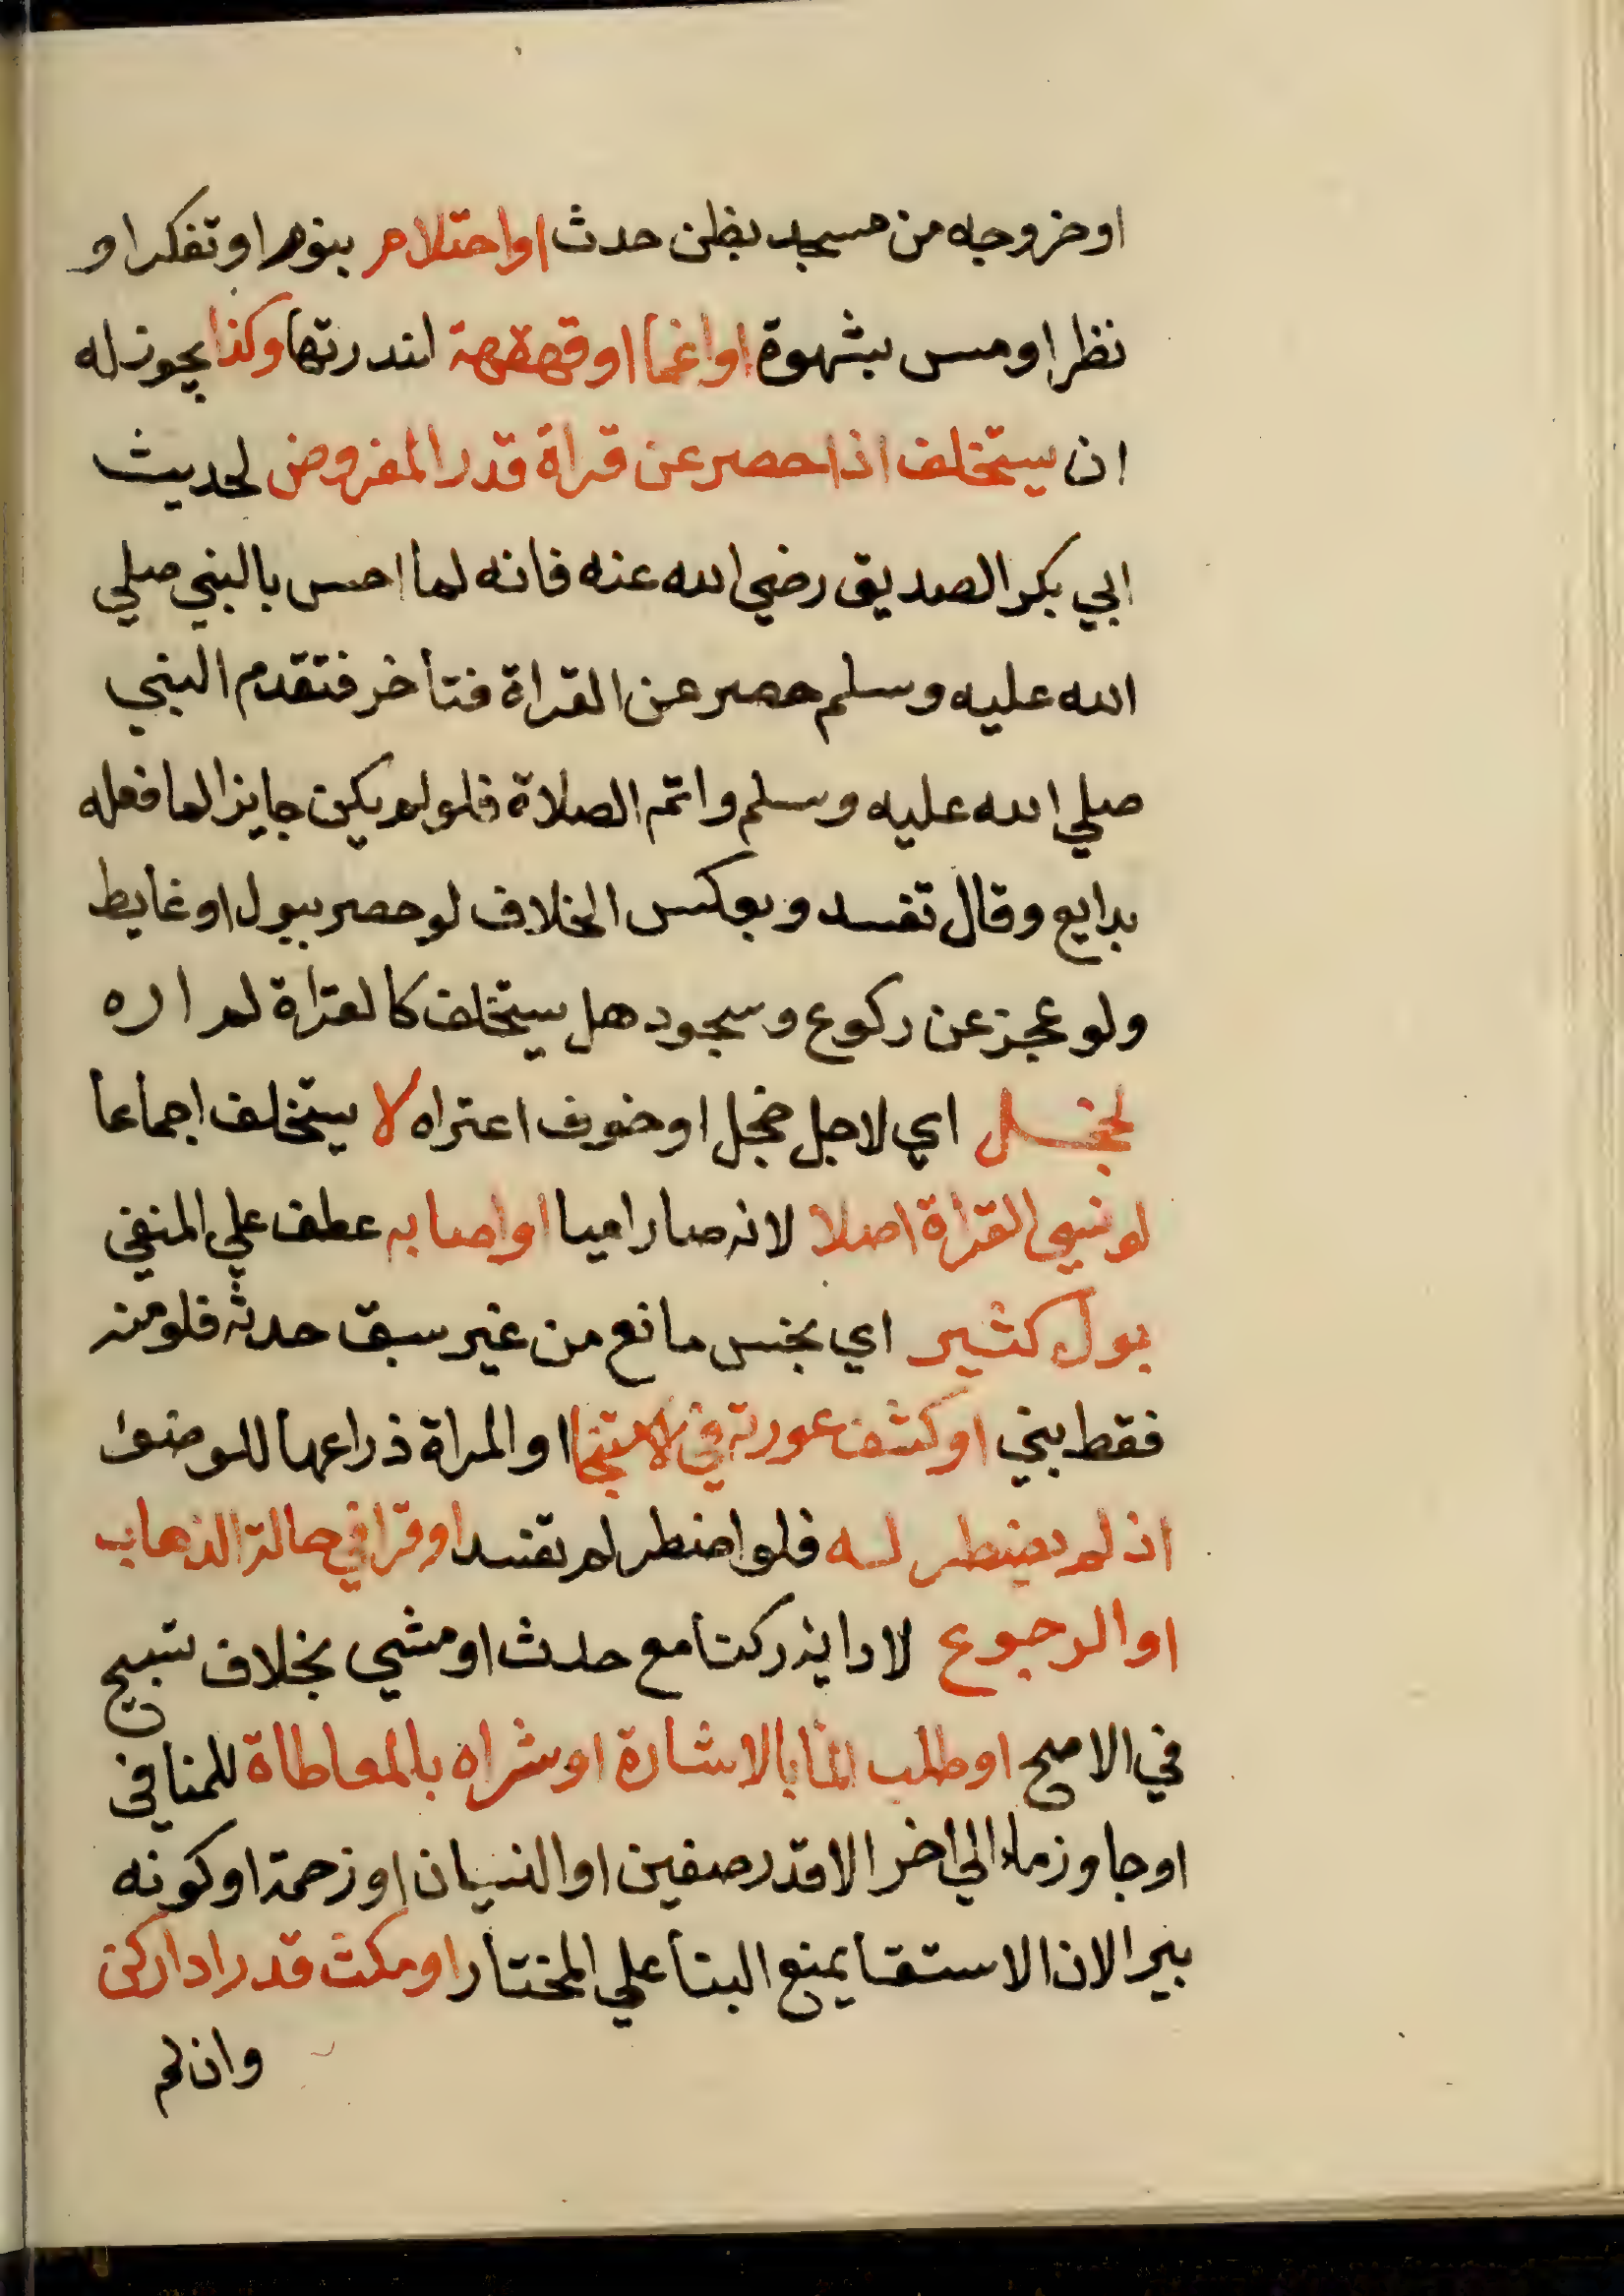 او خروجه من مسجد بظن حدث او احتلام بنوم او تفكر او
نظر او مس بشهوة او اغما او قهقهة لندرتها وكذا يجوز له
ان يستخلف اذا حصر عن قراة قدر المفروض لحديث
ابي بكر الصديق رضي الله عنه فانه لما احس بالنبي صلي
الله عليه وسلم حصر عن القراة فتأخر فتقدم النبي
صلي الله عليه وسلم واتم الصلاة فلو لم يكن جايزا لما فعله
بدايع وقال تفسد وبعكس الخلاف لو حصر ببول او غايط
ولو عجز عن ركوع وسجود هل يستخلف كالقراة لم اره
لخجل اي لاجل خجل او خوف اعتراه لا يستخلف اجماعا
لو نسي القراة اصلا لانه صار اميا او اصابه عطف علي المنفي
بول كثير اي نجس مانع من غير سبق حدثه فلو منه
فقط بني او كشف عورته في الاستنجا او المراة ذراعها للوضوء
اذ لم يضطر له فلو اضطر لم تفسد او قرا في حالة الذهاب
او الرجوع لادايه ركنا مع حدث او مشي بخلاف تسبيح
في الاصح او طلب الما بالاشارة او شراه بالمعاطاة للمنافي
او جاوز ماء الي اخر الا قدر صفين او النسيان او زحمة او كونه
بير الان الاستقا يمنع البنا علي المختار او مكث قدر ادا ركن
وان لم